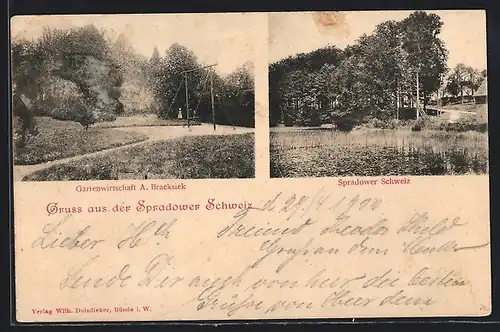 Gartenwirtschaft A. Bracksiek
Spradower Schweiz
Gruss aus der Spradower Schweiz
d. 29/4 1900
Lieber
Freund
Gruß an dem
Sende Dir auch von hier die besten
Grüße von
Verlag Wilh. Duisdieker, Bünde i. W.